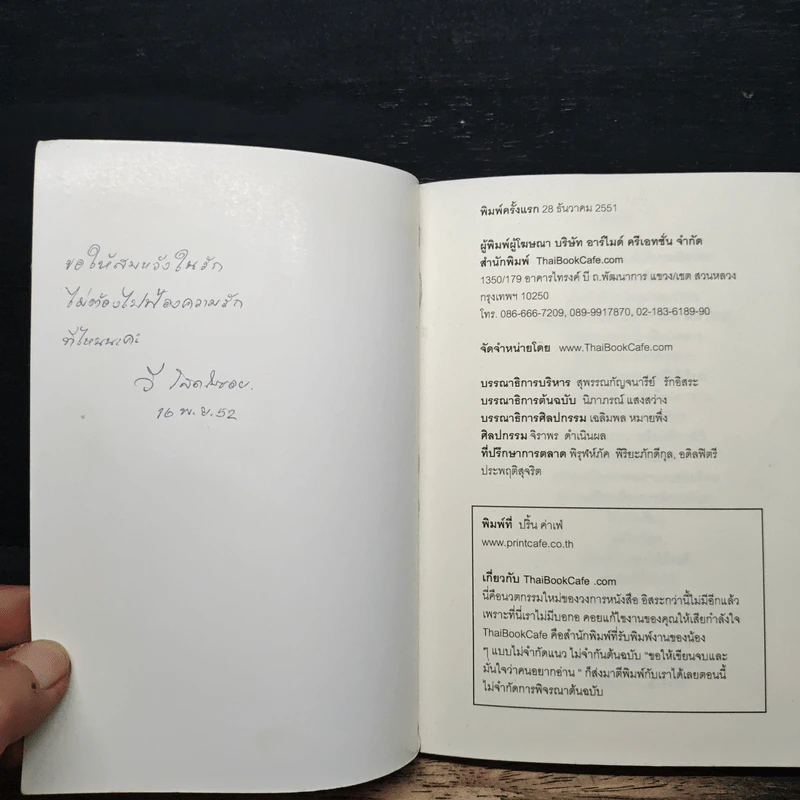 ขอให้สมหวังในรัก
ไม่ต้องไปฟ้องความรัก
ที่ไหนนะคะ
วี
16 พ.ย. 52
พิมพ์ครั้งแรก 28 ธันวาคม 2551
ผู้พิมพ์ผู้โฆษณา บริษัท อาร์ไมด์ ครีเอทชั่น จำกัด
สำนักพิมพ์ ThaiBookCafe.com
1350/179 อาคารไทรงค์ บี ถ.พัฒนาการ แขวง/เขต สวนหลวง
กรุงเทพฯ 10250
โทร. 086-666-7209, 089-9917870, 02-183-6189-90
จัดจำหน่ายโดย www.ThaiBookCafe.com
บรรณาธิการบริหาร สุพรรณกัญจนารีย์ รักอิสระ
บรรณาธิการต้นฉบับ นิภาภรณ์ แสงสว่าง
บรรณาธิการศิลปกรรม เฉลิมพล หมายพึ่ง
ศิลปกรรม จิราพร ดำเนินผล
ที่ปรึกษาการตลาด พิรุฬห์ภัค พิริยะภักดีกุล, อดิลฟิตรี
ประพฤติสุจริต
พิมพ์ที่ ปริ้น ค่าเฟ่
www.printcafe.co.th
เกี่ยวกับ ThaiBookCafe .com
นี่คือนวตกรรมใหม่ของวงการหนังสือ อิสระกว่านี้ไม่มีอีกแล้ว
เพราะที่นี่เราไม่มีบอกอ คอยแก้ไขงานของคุณให้เสียกำลังใจ
ThaiBookCafe คือสำนักพิมพ์ที่รับพิมพ์งานของน้อง
ๆ แบบไม่จำกัดแนว ไม่จำกันต้นฉบับ "ขอให้เขียนจบและ
มั่นใจว่าคนอยากอ่าน " ก็ส่งมาตีพิมพ์กับเราได้เลยตอนนี้
ไม่จำกัดการพิจรณาต้นฉบับ